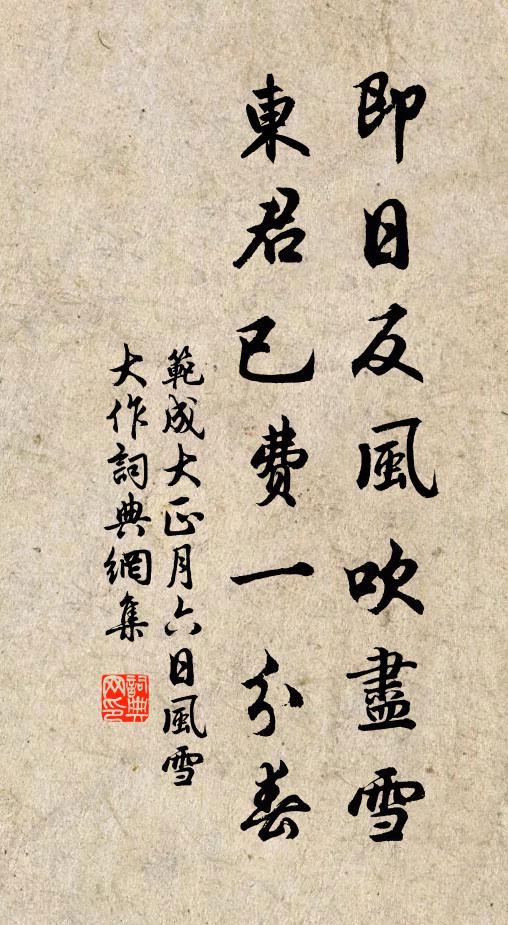 即日反風吹盡雪
東君已費一分春
範成大正月六日風雪
大作詞典網集
詞典
網印